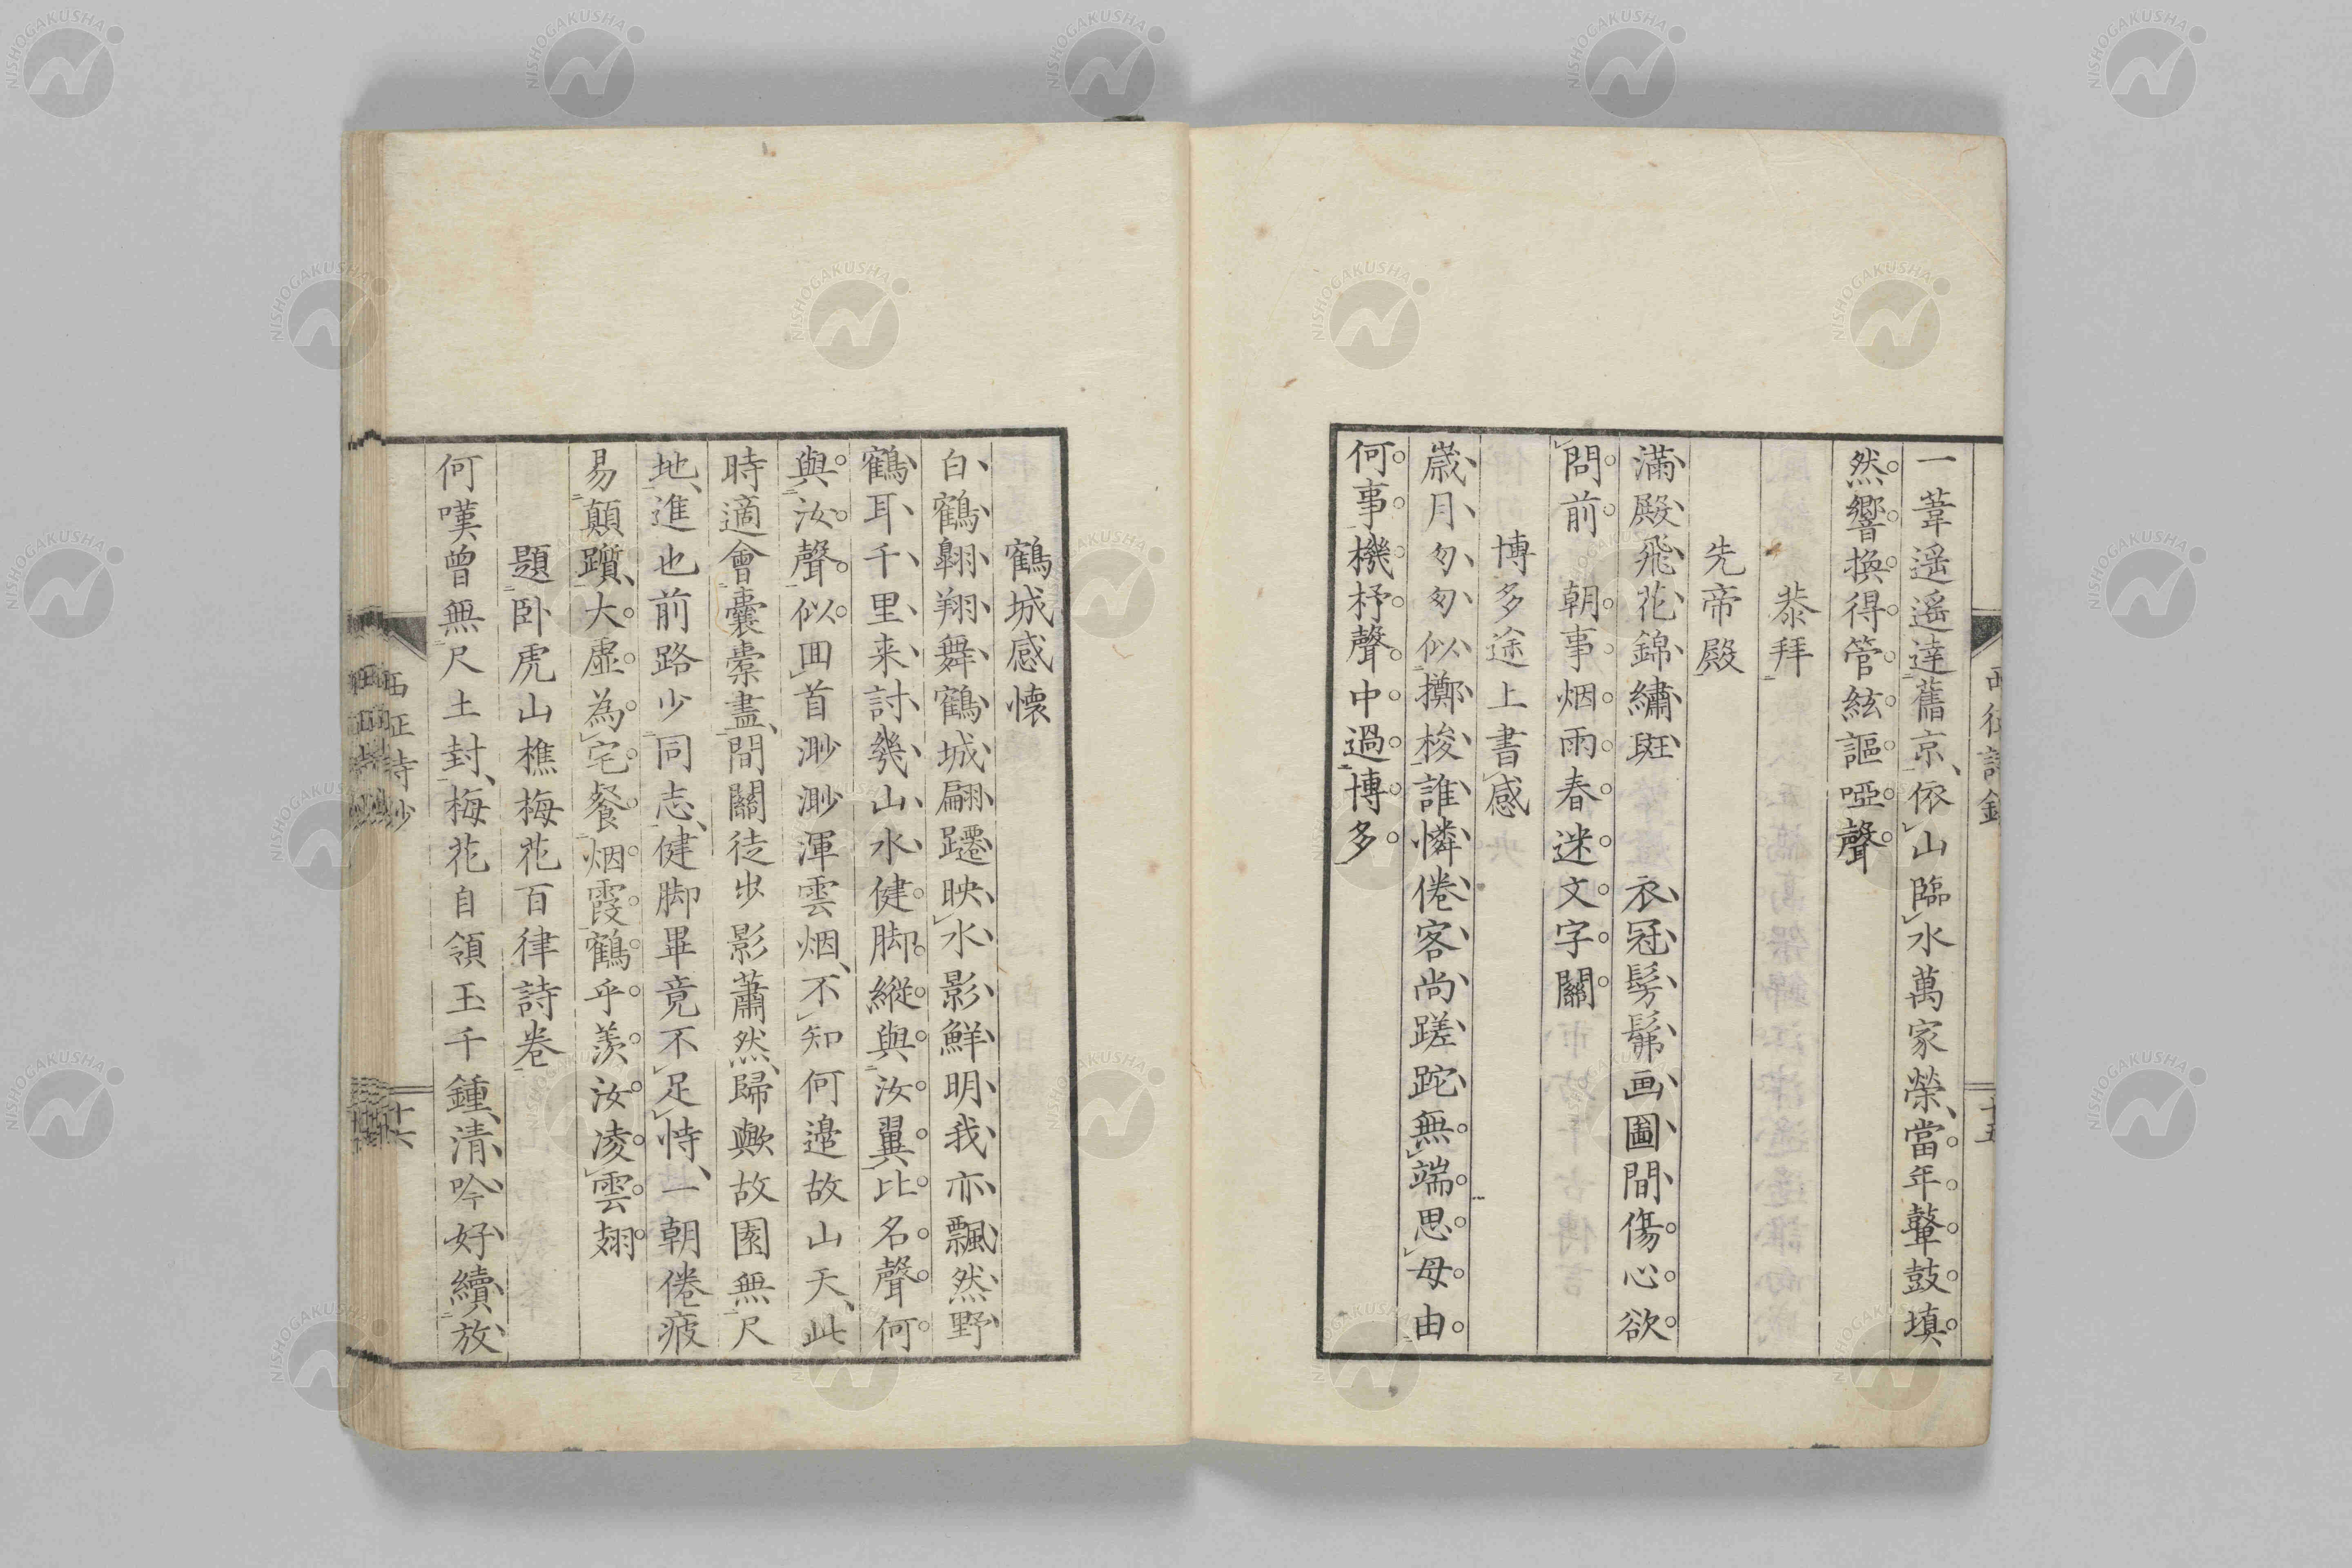 一葦遥遥達舊京依山臨水萬家榮當年鼙鼓填
然響換得管絃謳啞聲
恭拜
先帝殿
滿殿飛花錦繡斑　衣冠髣髴画圖間傷心欲
問前　朝事烟雨春迷文字關
博多途上書感
歳月匆匆似擲梭誰憐倦客尚蹉跎無端思母由
何事機杼聲中過博多
十五
鶴城感懷
白鶴翺翔舞鶴城翩躚映水影鮮明我亦飄然野
鶴耳千里来討幾山水健脚縱與汝翼比名聲何
與汝聲似囬首渺渺渾雲烟不知何邉故山天此
時適會囊橐盡間關徒步影蕭然歸歟故園無尺
地進也前路少同志健脚畢竟不足恃一朝倦疲
易顛躓大虚為宅餐烟霞鶴乎羨汝凌雲翅
題臥虎山樵梅花百律詩巻
何嘆曾無尺土封梅花自領玉千鍾清吟好續放
十六
NISHOGAKUSHA